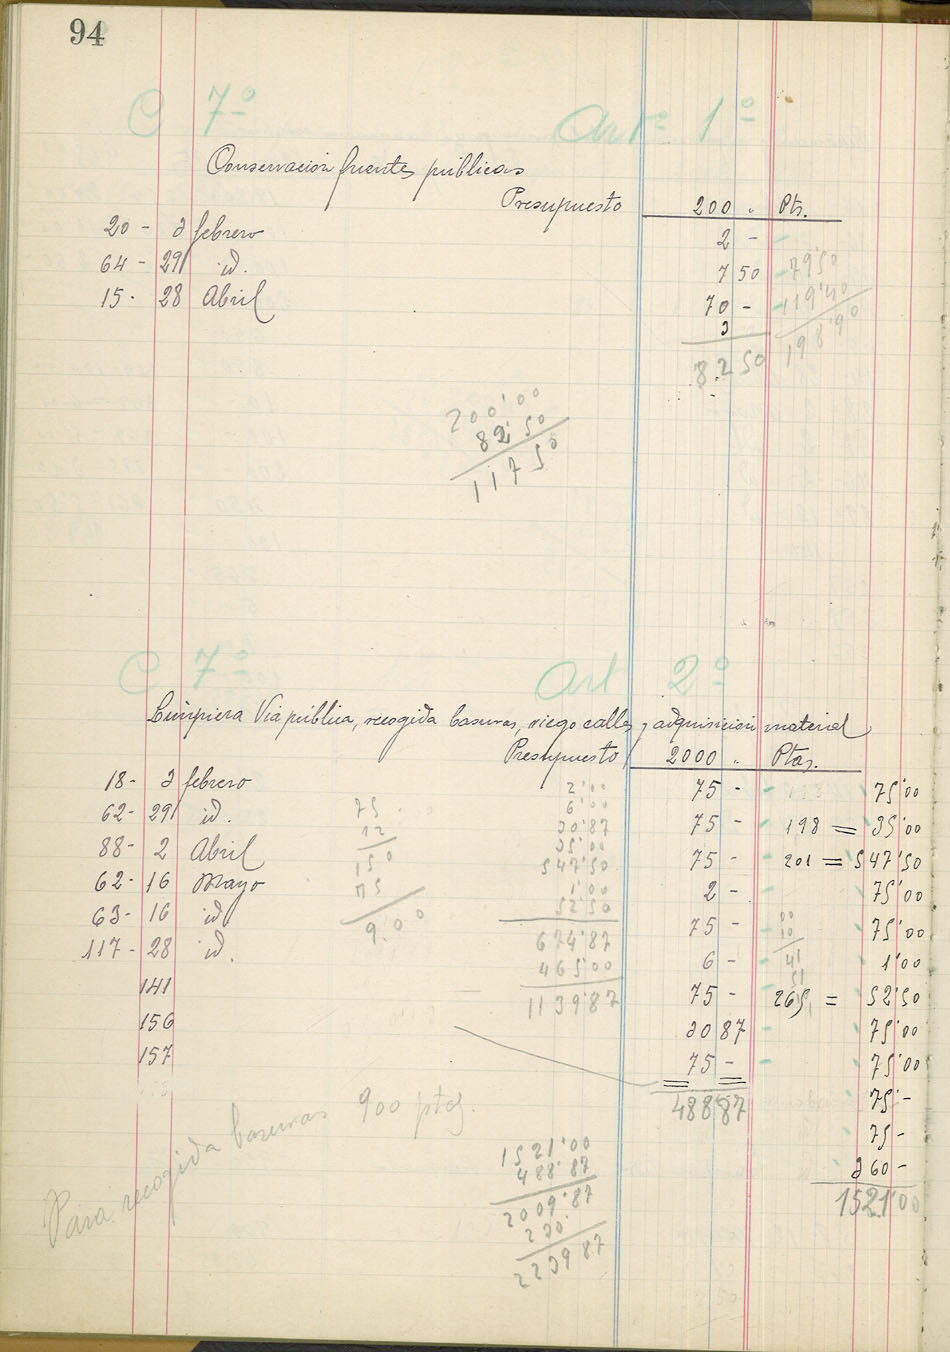 94
C 7º Artº 1º
Conservación fuentes públicas
Presupuesto 200 " Pts.
20 - 3 febrero 2 -
64 - 29 id. 7 50 7950
15 - 28 Abril 70 - 119'40
3 198'90
82 50
200'00
82'50
117 50
C 7º Art 2º
Limpieza Via pública, recogida basuras, riego calles y adquisición material
Presupuesto 2000 " Ptas.
18 - 3 febrero 2'00 75 - 75'00
62 - 29 id. 75 6'00 75 - 198 = 35'00
88 - 2 Abril 12 30'87 75 - 201 = 547'50
62 - 16 Mayo 150 35'00 2 - 75'00
63 - 16 id 75 547'50 75 - 75'00
117 - 28 id. 9.00 1'00 6 - 1'00
141 52'50 75 - 265 = 52'50
156 674'87 30 87 75'00
157 465'00 75 - 75'00
1139'87 488'87 75 -
75 -
360 -
1521'00
Para recogida basuras 900 ptas.
1521'00
488'87
2009'87
230
2239 87